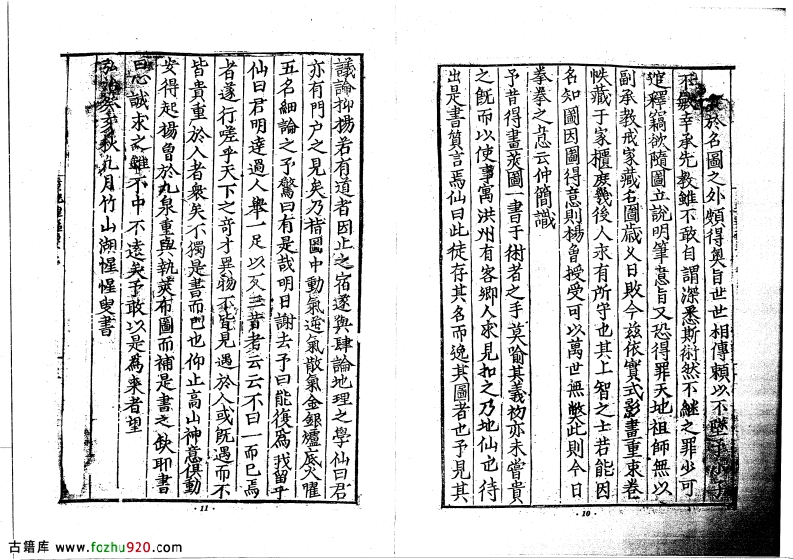 於名圖之外頗得奥旨世世相傳賴以不墜予小子
不敏幸承先教雖不敢自謂深悉斯術然不継之罪少可
逭釋竊欲隨圖立說明筆意旨又恐得罪天地祖師無以
副承教戒家藏名圖歲乂日敗今兹依實式影畫重束卷
帙藏于家櫃庶幾後人永有所守也其上智之士若能因
名知圖因圖得意則楊曾授受可以萬世無弊此則今日
拳拳之意云仲簡識
予昔得畫䇲圖一書于術者之手莫喻其義初亦未嘗貴
之旣而以使事寓洪州有客鄉人求見扣之乃地仙也待
出是書質言焉仙曰此徒存其名而逸其圖者也予見其
· 10 ·
議論抑揚若有道者因止之宿遂與肆論地理之學仙曰君
亦有門户之見矣乃指圖中動氣逆氣散氣金銀爐底火曜
五名細論之予驚曰有是哉明日謝去予曰能復為我留乎
仙曰君明達過人舉一足以反三昔者云云不曰一而巳焉
者遂行嗟乎天下之奇才異物不皆見遇於人或旣遇而不
皆貴重於人者衆矣不獨是書而巴也仰止高山神意俱動
安得起楊曾於九泉重與執䇲布圖而補是書之缺耶書
曰心誠求之雖不中不遠矣予敢以是為來者望
弘治癸亥秋九月竹山湖惺惺叟書
· 11 ·
古籍库 www.fozhu920.com